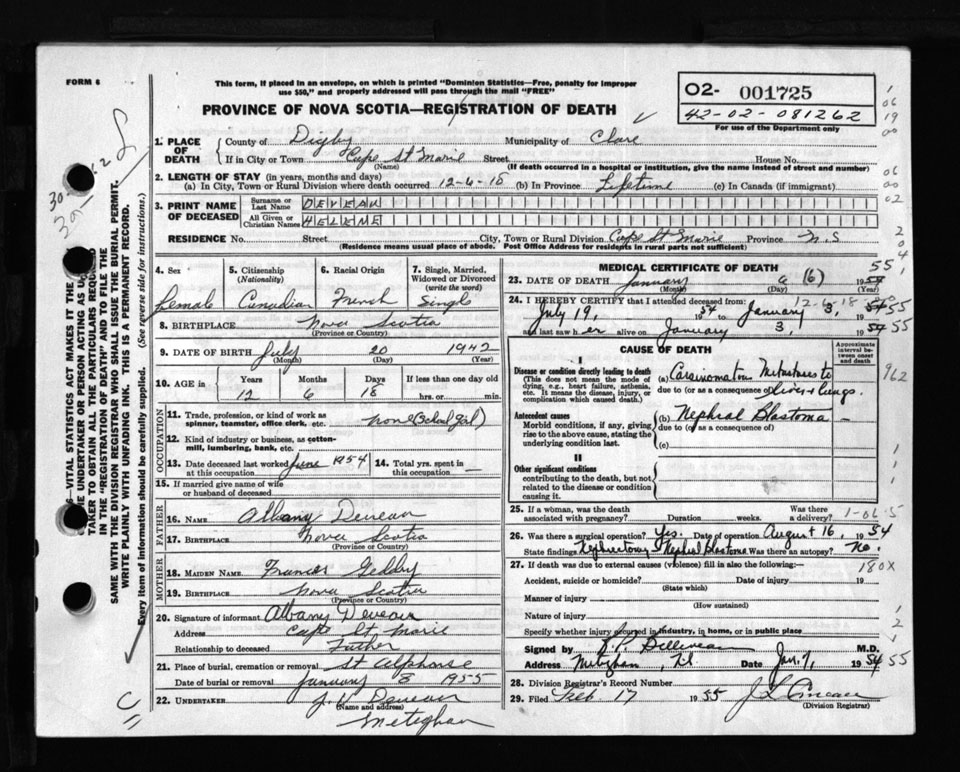 FORM 6
This form, if placed in an envelope, on which is printed "Dominion Statistics—Free, penalty for improper
use $50," and properly addressed will pass through the mail "FREE"
PROVINCE OF NOVA SCOTIA—REGISTRATION OF DEATH
02- 001725
42-02-081262
For use of the Department only
1. PLACE OF DEATH
County of Digby Municipality of Clare
If in City or Town Cape St Marie Street House No.
(Name) (If death occurred in a hospital or institution, give the name instead of street and number)
2. LENGTH OF STAY (in years, months and days)
(a) In City, Town or Rural Division where death occurred 12-6-18 (b) In Province Lifetime (c) In Canada (if immigrant)
3. PRINT NAME OF DECEASED
Surname or Last Name DEVEAU
All Given or Christian Names HELENE
RESIDENCE No. Street City, Town or Rural Division Cape St Marie Province N.S
(Residence means usual place of abode. Post Office Address for residents in rural parts not sufficient)
4. Sex Female
5. Citizenship (Nationality) Canadian
6. Racial Origin French
7. Single, Married, Widowed or Divorced (write the word) Single
8. BIRTHPLACE Nova Scotia
(Province or Country)
9. DATE OF BIRTH July 20 1942
(Month) (Day) (Year)
10. AGE in Years 12 Months 6 Days 18 If less than one day old
hrs. or min.
OCCUPATION
11. Trade, profession, or kind of work as spinner, teamster, office clerk, etc. none (School girl)
12. Kind of industry or business, as cotton-mill, lumbering, bank, etc.
13. Date deceased last worked at this occupation June 1954
14. Total yrs. spent in this occupation —
15. If married give name of wife or husband of deceased
FATHER
16. NAME Albany Deveau
17. BIRTHPLACE Nova Scotia
(Province or Country)
MOTHER
18. MAIDEN NAME Frances
19. BIRTHPLACE Nova Scotia
(Province or Country)
20. Signature of informant Albany Deveau
Address Cape St Marie
Relationship to deceased Father
21. Place of burial, cremation or removal St Alphonse
Date of burial or removal January 8 1955
22. UNDERTAKER J. V. Deveau
(Name and address)
Meteghan
MEDICAL CERTIFICATE OF DEATH
23. DATE OF DEATH January 6 (6) 1954 55
(Month) (Day)
24. I HEREBY CERTIFY that I attended deceased from:
12-6-18
July 19, 1954 to January 3, 1954 55
and last saw her alive on January 3, 1954 55
CAUSE OF DEATH
Approximate interval between onset and death
I
Disease or condition directly leading to death
(This does not mean the mode of dying, e.g., heart failure, asthenia, etc. It means the disease, injury, or complication which caused death.)
(a) Carsinomatou Metastases to
due to (or as a consequence of) liver & lungs.
Antecedent causes
Morbid conditions, if any, giving rise to the above cause, stating the underlying condition last.
(b) Nephral Blastoma
due to (or as a consequence of)
(c)
II
Other significant conditions
contributing to the death, but not related to the disease or condition causing it.
25. If a woman, was the death associated with pregnancy? Duration weeks. Was there a delivery? 1-06-5
26. Was there a surgical operation? Yes. Date of operation August 16, 1954
State findings Nephrectomy Nephral Blastoma Was there an autopsy? No.
27. If death was due to external causes (violence) fill in also the following:—
180X
Accident, suicide or homicide? Date of injury 19
(State which)
Manner of injury
(How sustained)
Nature of injury
Specify whether injury occurred in industry, in home, or in public place
Signed by M.D.
Address Meteghan, Date Jan. 7, 1954 55
28. Division Registrar's Record Number
29. Filed Feb 17 1955
(Division Registrar)
962
THE VITAL STATISTICS ACT MAKES IT THE
THE UNDERTAKER OR PERSON ACTING AS
TAKER TO OBTAIN ALL THE PARTICULARS REQUIRED
IN THE "REGISTRATION OF DEATH" AND TO FILE THE
SAME WITH THE DIVISION REGISTRAR WHO SHALL ISSUE THE BURIAL PERMIT.
WRITE PLAINLY WITH UNFADING INK. THIS IS A PERMANENT RECORD.
Every item of information should be carefully supplied. (See reverse side for instructions.)